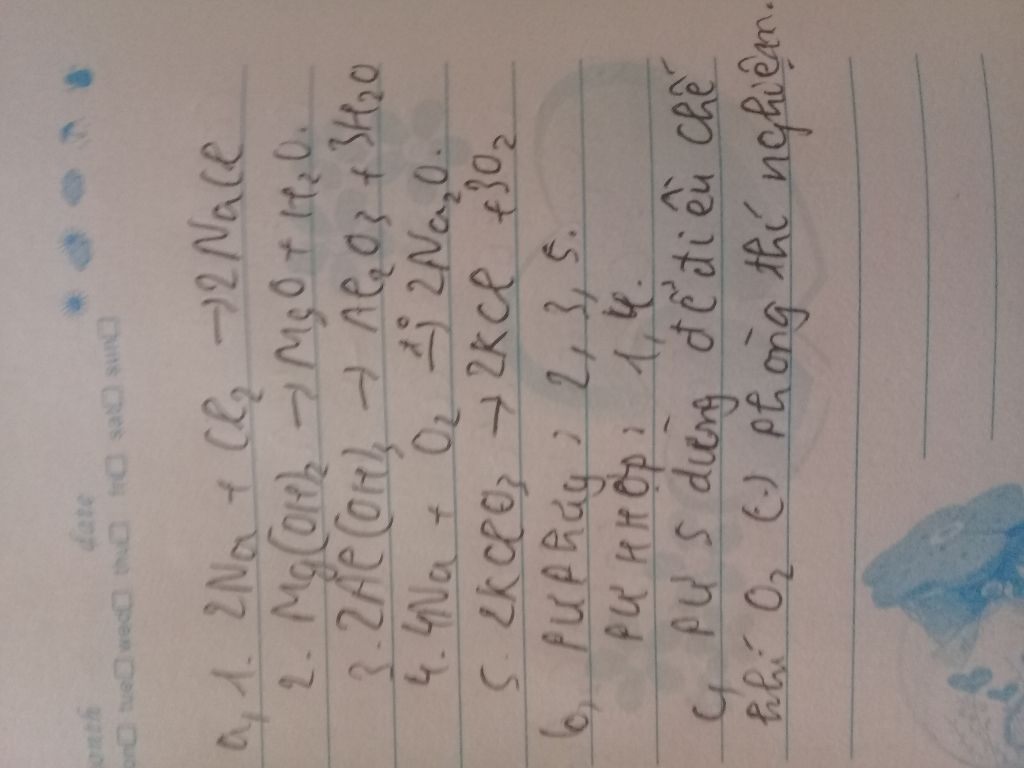 date
tue☐ wed☐ thu☐ fri☐ sat☐ sun☐
a, 1. 2Na + Cl₂ → 2NaCl
2. Mg(OH)₂ → MgO + H₂O.
3. 2Al(OH)₃ → Al₂O₃ + 3H₂O
4. 4Na + O₂ →(t°) 2Na₂O.
5. 2KClO₃ → 2KCl + 3O₂
b, PƯ Phân hủy: 2, 3, 5.
PƯ H Hợp: 1, 4.
c, PƯ 5 dùng để điều chế
khí O₂ (.) phòng thí nghiệm.